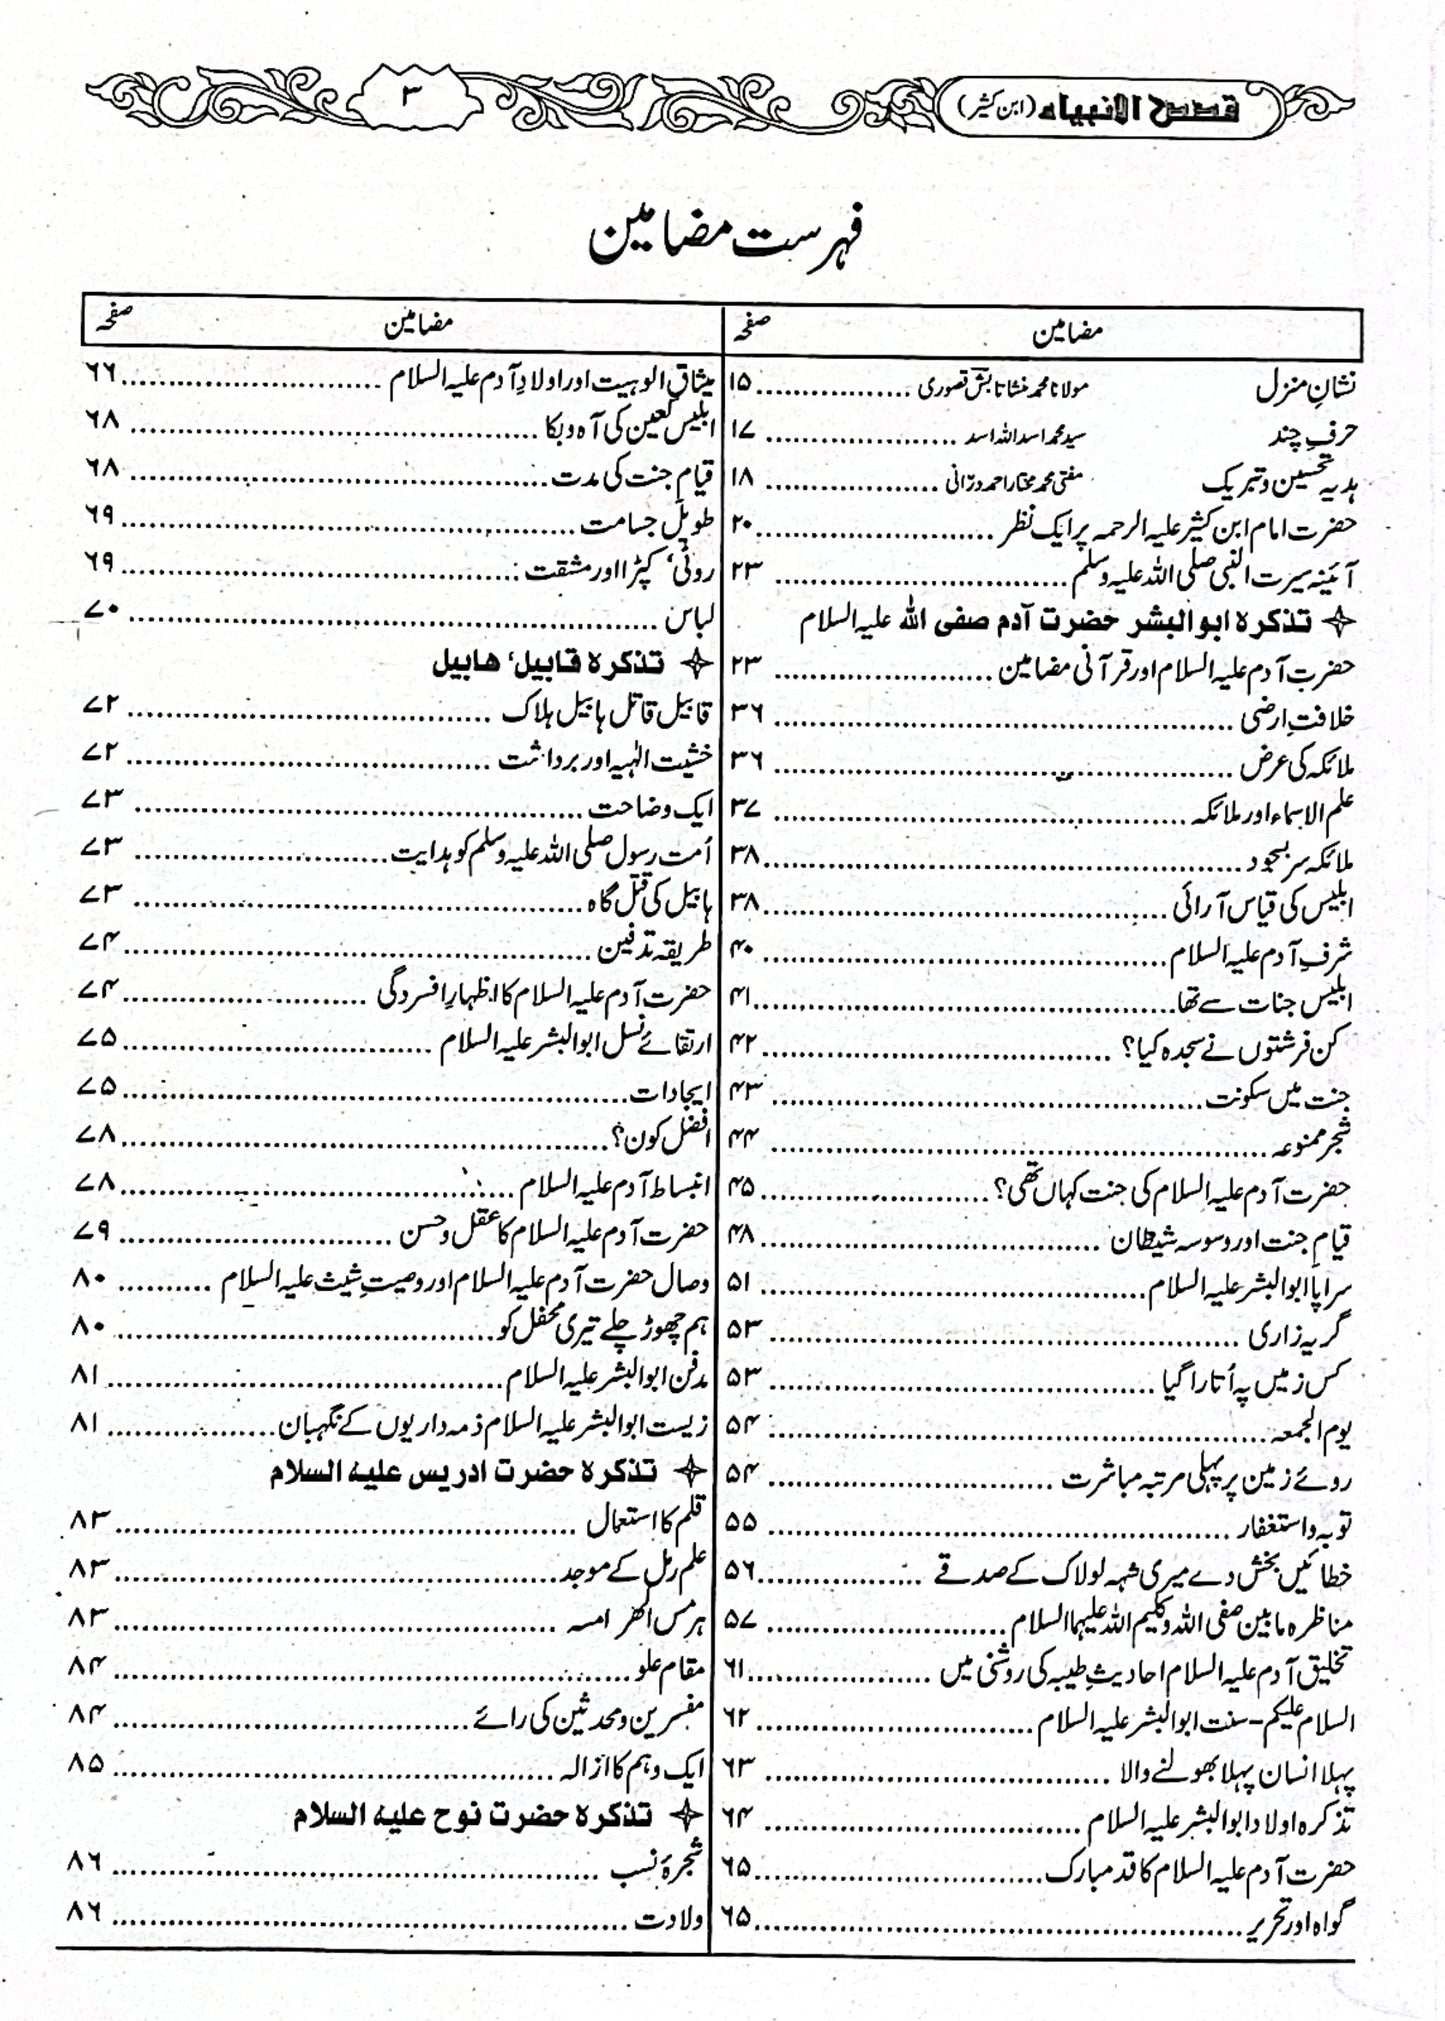 قصص الانبیاء (ابن کثیر)
۳
فہرست مضامین
مضامین صفحہ
نشانِ منزل مولانا محمد منشا تابش قصوری ................. ۱۵
حرفِ چند سید محمد اسد اللہ اسد ..................... ۱۷
ہدیہ تحسین و تبریک مفتی محمد مختار احمد درّانی ................... ۱۸
حضرت امام ابن کثیر علیہ الرحمہ پر ایک نظر .......................... ۲۰
آئینہ سیرت النبی صلی اللہ علیہ وسلم ................................ ۲۳
تذکرہ ابوالبشر حضرت آدم صفی اللہ علیہ السلام
حضرت آدم علیہ السلام اور قرآنی مضامین ........................ ۲۳
خلافتِ ارضی .................................................. ۳۶
ملائکہ کی عرض .................................................. ۳۶
علم الاسماء اور ملائکہ ............................................. ۳۷
ملائکہ سر بسجود .................................................. ۳۸
ابلیس کی قیاس آرائی ............................................ ۳۸
شرفِ آدم علیہ السلام ............................................ ۴۰
ابلیس جنات سے تھا .............................................. ۴۱
کن فرشتوں نے سجدہ کیا؟ ...................................... ۴۲
جنت میں سکونت ............................................... ۴۳
شجر ممنوعہ ...................................................... ۴۴
حضرت آدم علیہ السلام کی جنت کہاں تھی؟ ......................... ۴۵
قیامِ جنت اور وسوسہ شیطان ..................................... ۴۸
سراپا ابوالبشر علیہ السلام .......................................... ۵۱
گریہ زاری ................................................... ۵۳
کس زمیں پہ اُتارا گیا .......................................... ۵۳
یوم الجمعہ ...................................................... ۵۴
روئے زمین پر پہلی مرتبہ مباشرت ............................... ۵۴
توبہ و استغفار .................................................. ۵۵
خطائیں بخش دے میری شہہ لولاک کے صدقے .................. ۵۶
مناظرہ مابین صفی اللہ و کلیم اللہ علیہما السلام .......................... ۵۷
تخلیق آدم علیہ السلام احادیثِ طیبہ کی روشنی میں .................... ۶۱
السلام علیکم - سنت ابوالبشر علیہ السلام .............................. ۶۲
پہلا انسان پہلا بھولنے والا ...................................... ۶۳
تذکرہ اولاد ابوالبشر علیہ السلام ................................... ۶۴
حضرت آدم علیہ السلام کا قد مبارک ................................ ۶۵
گواہ اور تحریر ................................................... ۶۵
مضامین صفحہ
میثاق الوہیت اور اولادِ آدم علیہ السلام ............................ ۶۶
ابلیس لعین کی آہ و بکا ............................................ ۶۸
قیامِ جنت کی مدت .............................................. ۶۸
طویل جسامت ................................................. ۶۹
روٹی، کپڑا اور مشقت ........................................... ۶۹
لباس .......................................................... ۷۰
تذکرہ قابیل، ہابیل
قابیل قاتل ہابیل ہلاک ........................................ ۷۲
خشیت الٰہیہ اور برداشت ........................................ ۷۲
ایک وضاحت ................................................. ۷۳
اُمت رسول صلی اللہ علیہ وسلم کو ہدایت ............................ ۷۳
ہابیل کی قتل گاہ ................................................ ۷۳
طریقہ تدفین .................................................. ۷۴
حضرت آدم علیہ السلام کا اظہارِ افسردگی ........................... ۷۴
ارتقائے نسل ابوالبشر علیہ السلام .................................. ۷۵
ایجادات ...................................................... ۷۵
افضل کون؟ ................................................... ۷۸
انبساط آدم علیہ السلام .......................................... ۷۸
حضرت آدم علیہ السلام کا عقل و حسن .............................. ۷۹
وصال حضرت آدم علیہ السلام اور وصیتِ شیث علیہ السلام .......... ۸۰
ہم چھوڑ چلے تیری محفل کو ........................................ ۸۰
مدفن ابوالبشر علیہ السلام ......................................... ۸۱
زیست ابوالبشر علیہ السلام ذمہ داریوں کے نگہبان .................. ۸۱
تذکرہ حضرت ادریس علیہ السلام
قلم کا استعمال .................................................. ۸۳
علم رمل کے موجد ............................................... ۸۳
ہرمس الھرامسہ ................................................. ۸۳
مقام علو ....................................................... ۸۴
مفسرین و محدثین کی رائے ....................................... ۸۴
ایک وہم کا ازالہ ................................................ ۸۵
تذکرہ حضرت نوح علیہ السلام
شجرۂ نسب ..................................................... ۸۶
ولادت ........................................................ ۸۶